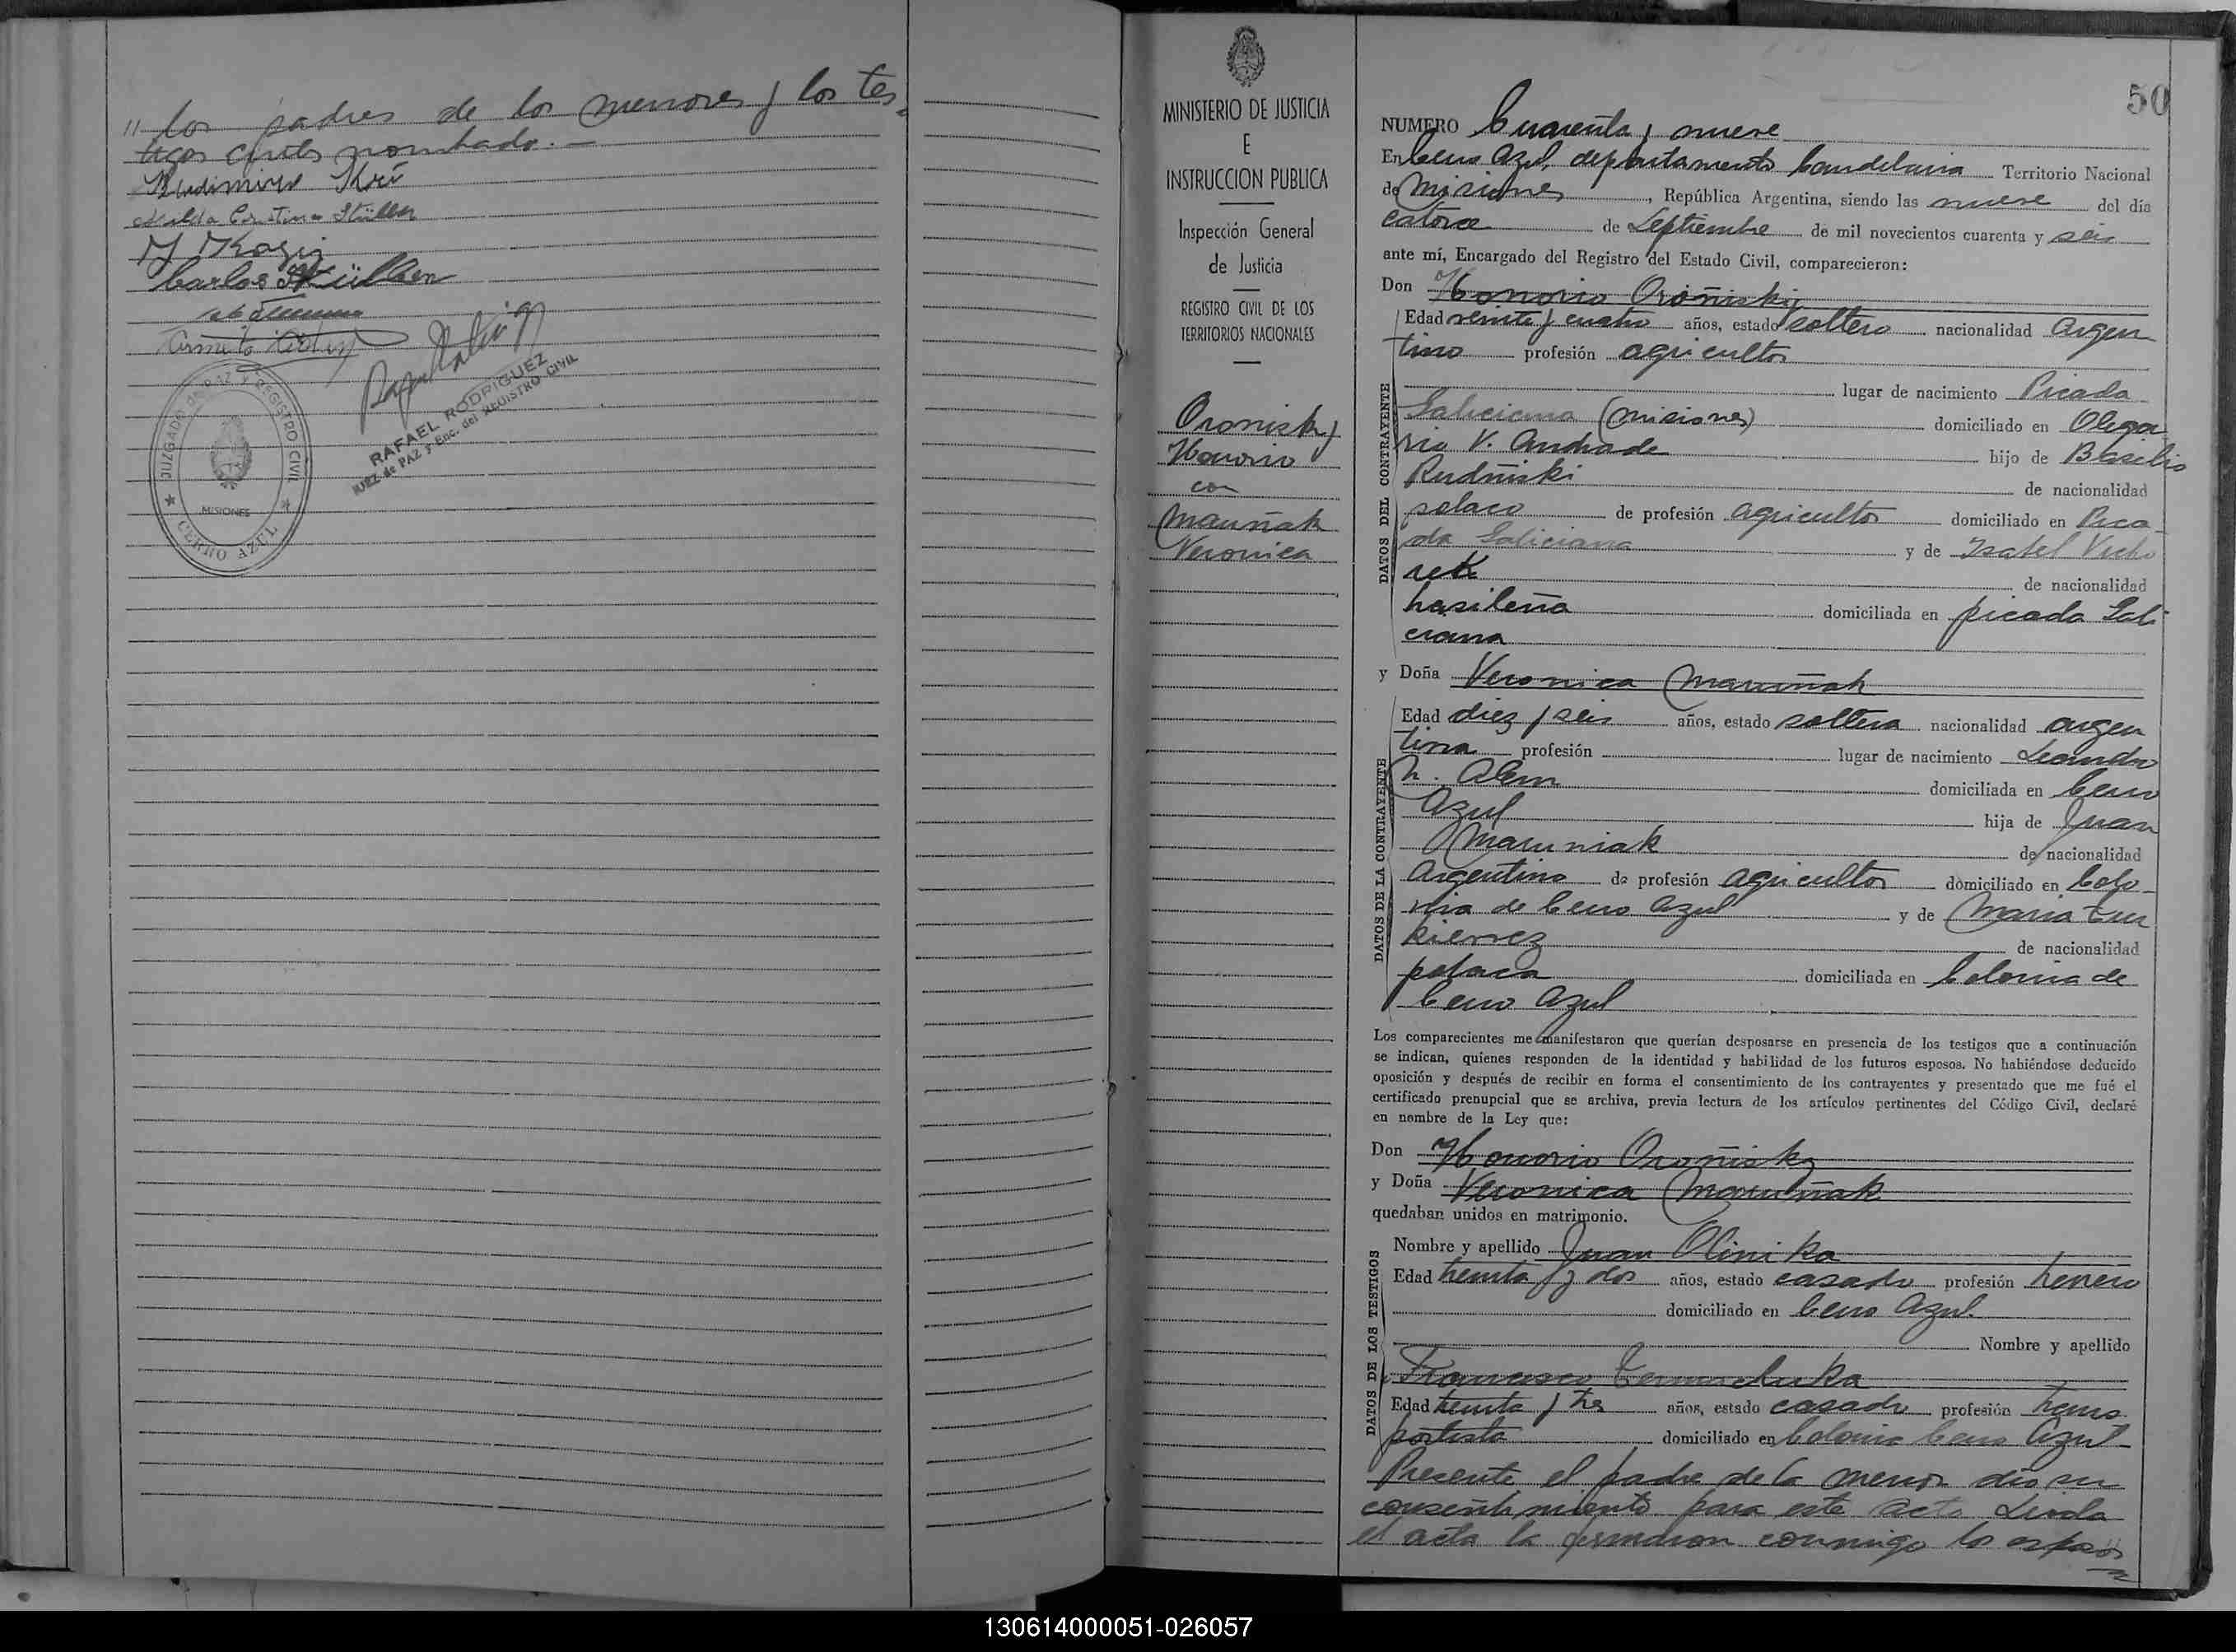 // los padres de los menores y los tes-
tigos antes nombrado.-
Carlos Stülben
JUZGADO DE PAZ Y REGISTRO CIVIL
MISIONES
CERRO AZUL
RAFAEL RODRIGUEZ
JUEZ de PAZ y Enc. del REGISTRO CIVIL
MINISTERIO DE JUSTICIA
E
INSTRUCCION PUBLICA
Inspección General
de Justicia
REGISTRO CIVIL DE LOS
TERRITORIOS NACIONALES
Oronisky
Honorio
con
Mauñak
Veronica
50
NUMERO Cuarenta y nueve
En Cerro Azul, departamento Candelaria Territorio Nacional
de Misiones, República Argentina, siendo las nueve del día
catorce de Septiembre de mil novecientos cuarenta y seis
ante mí, Encargado del Registro del Estado Civil, comparecieron:
Don Honorio Oroñisky
Edad veinte y cuatro años, estado soltero nacionalidad argen
tino profesión agricultor
lugar de nacimiento Picada
DATOS DEL CONTRAYENTE
Galiciana (Misiones) domiciliado en Olega
rio V. Andrade hijo de Basilio
Rudñiski de nacionalidad
polaco de profesión agricultor domiciliado en Pica
da Galiciana y de Isabel
de nacionalidad
brasileña domiciliada en picada Gali
ciana
y Doña Veronica Maruñak
Edad diez y seis años, estado soltera nacionalidad argen
tina profesión lugar de nacimiento Leandro
DATOS DE LA CONTRAYENTE
N. Alem domiciliada en Cerro
Azul hija de Juan
Maruniak de nacionalidad
Argentino de profesión agricultor domiciliado en Colo-
nia de Cerro Azul y de Maria
de nacionalidad
polaca domiciliada en Colonia de
Cerro Azul
Los comparecientes me manifestaron que querían desposarse en presencia de los testigos que a continuación
se indican, quienes responden de la identidad y habilidad de los futuros esposos. No habiéndose deducido
oposición y después de recibir en forma el consentimiento de los contrayentes y presentado que me fué el
certificado prenupcial que se archiva, previa lectura de los artículos pertinentes del Código Civil, declaré
en nombre de la Ley que:
Don Honorio Oroñisky
y Doña Veronica Maruñak
quedaban unidos en matrimonio.
DATOS DE LOS TESTIGOS
Nombre y apellido Juan Olinika
Edad treinta y dos años, estado casado profesión herrero
domiciliado en Cerro Azul.
Nombre y apellido
Francisco
Edad treinta y tres años, estado casado profesión trans
portista domiciliado en Colonia Cerro Azul
Presente el padre de la menor dio su
consentimiento para este acto Leida
el acta la firmaron conmigo los esposos
130614000051-026057